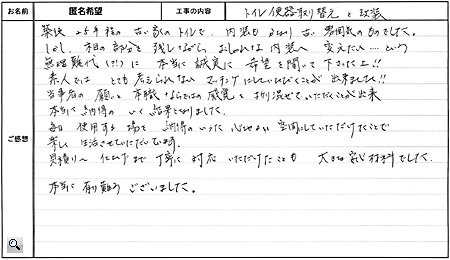 お名前 匿名希望 工事の内容 トイレ便器取り替えと改装
ご感想
築後25年程の古い家のトイレで、内装もかなり古い雰囲気のものでした。
しかし、和の部分を残しながらおしゃれな内装へ変えたい……という
無理難代(?)に本当に誠実に希望を聞いて下さった上!!
素人ではとても考えられないマッチングにしていただくことが出来ました!!
当事者の願いと本職ならではの感覚を折り混ぜていただくことが出来
本当に納得のいく結果となりました。
毎日使用する場を納得のいった心地よい空間にしていただけたことで
楽しく生活させていただいています。
見積り〜仕上げまで丁寧に対応いただけたことも大きな安心材料でした。
本当に有難うございました。